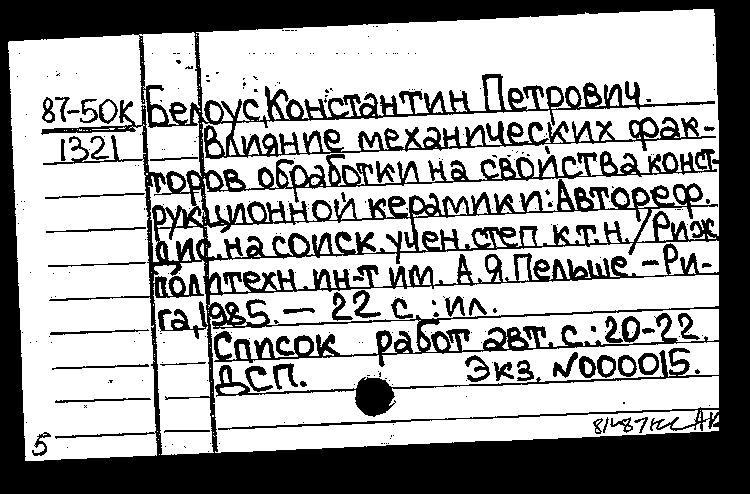 87-50к Белоус, Константин Петрович.
1321 Влияние механических фак-
торов обработки на свойства конст-
рукционной керамики: Автореф.
дис. на соиск. учен. степ. к.т.н. / Риж.
политехн. ин-т им. А.Я. Пельше. – Ри-
га, 1985. – 22 с. : ил.
Список работ авт. с.: 20-22.
ДСП. Экз. №000015.
5